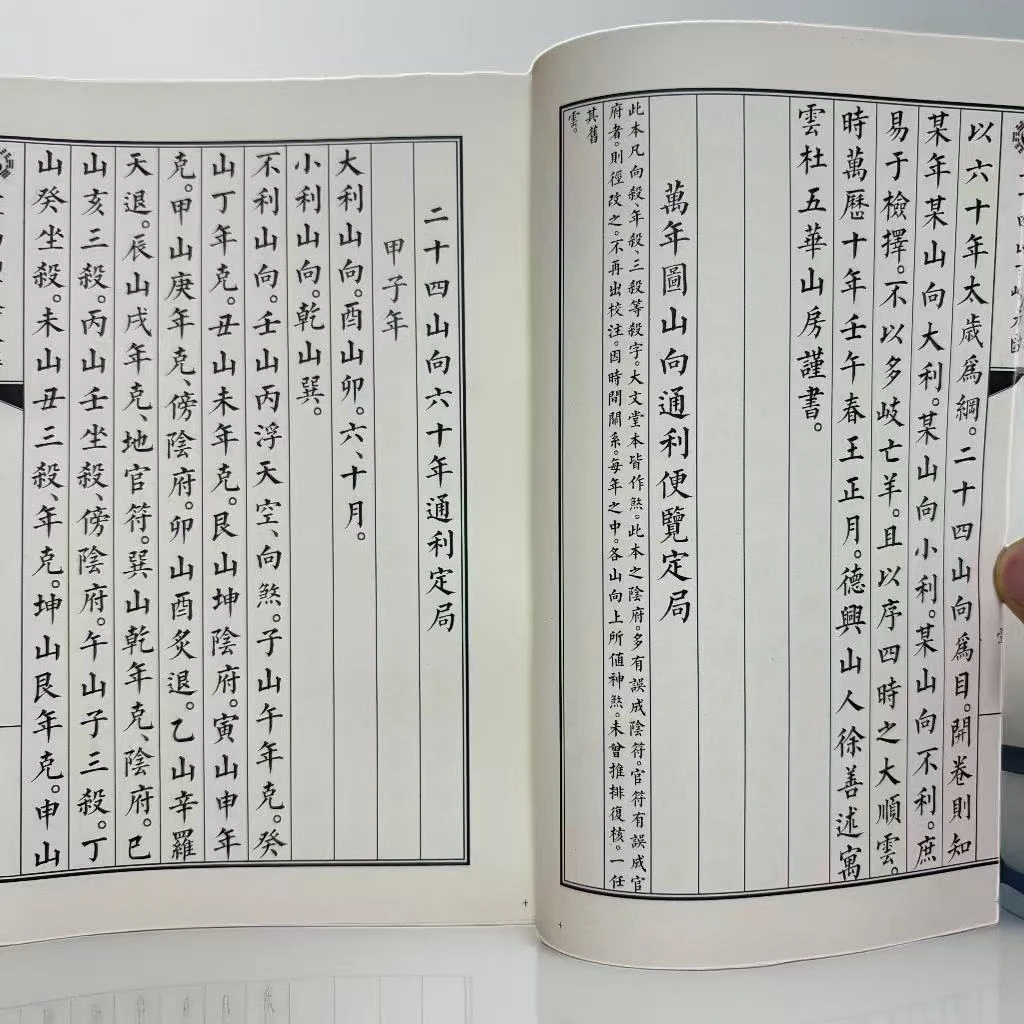 以六十年太歲爲綱。二十四山向爲目。開卷則知
某年某山向大利。某山向小利。某山向不利。庶
易于檢擇。不以多岐亡羊。且以序四時之大順雲。
時萬曆十年壬午春王正月。德興山人徐善述寓
雲杜五華山房謹書。
萬年圖山向通利便覽定局
此本凡向殺、年殺、三殺等殺字。大文堂本皆作煞。此本之陰府。多有誤成陰符。官符有誤成官
府者。則徑改之。不再出校注。因時間關系。每年之中。各山向上所值神煞。未曾推排復核。一任
其舊
雲。
二十四山向六十年通利定局
甲子年
大利山向。酉山卯。六、十月。
小利山向。乾山巽。
不利山向。壬山丙浮天空、向煞。子山午年克。癸
山丁年克。丑山未年克。艮山坤陰府。寅山申年
克。甲山庚年克、傍陰府。卯山酉炙退。乙山辛羅
天退。辰山戌年克、地官符。巽山乾年克、陰府。巳
山亥三殺。丙山壬坐殺、傍陰府。午山子三殺。丁
山癸坐殺。未山丑三殺、年克。坤山艮年克。申山